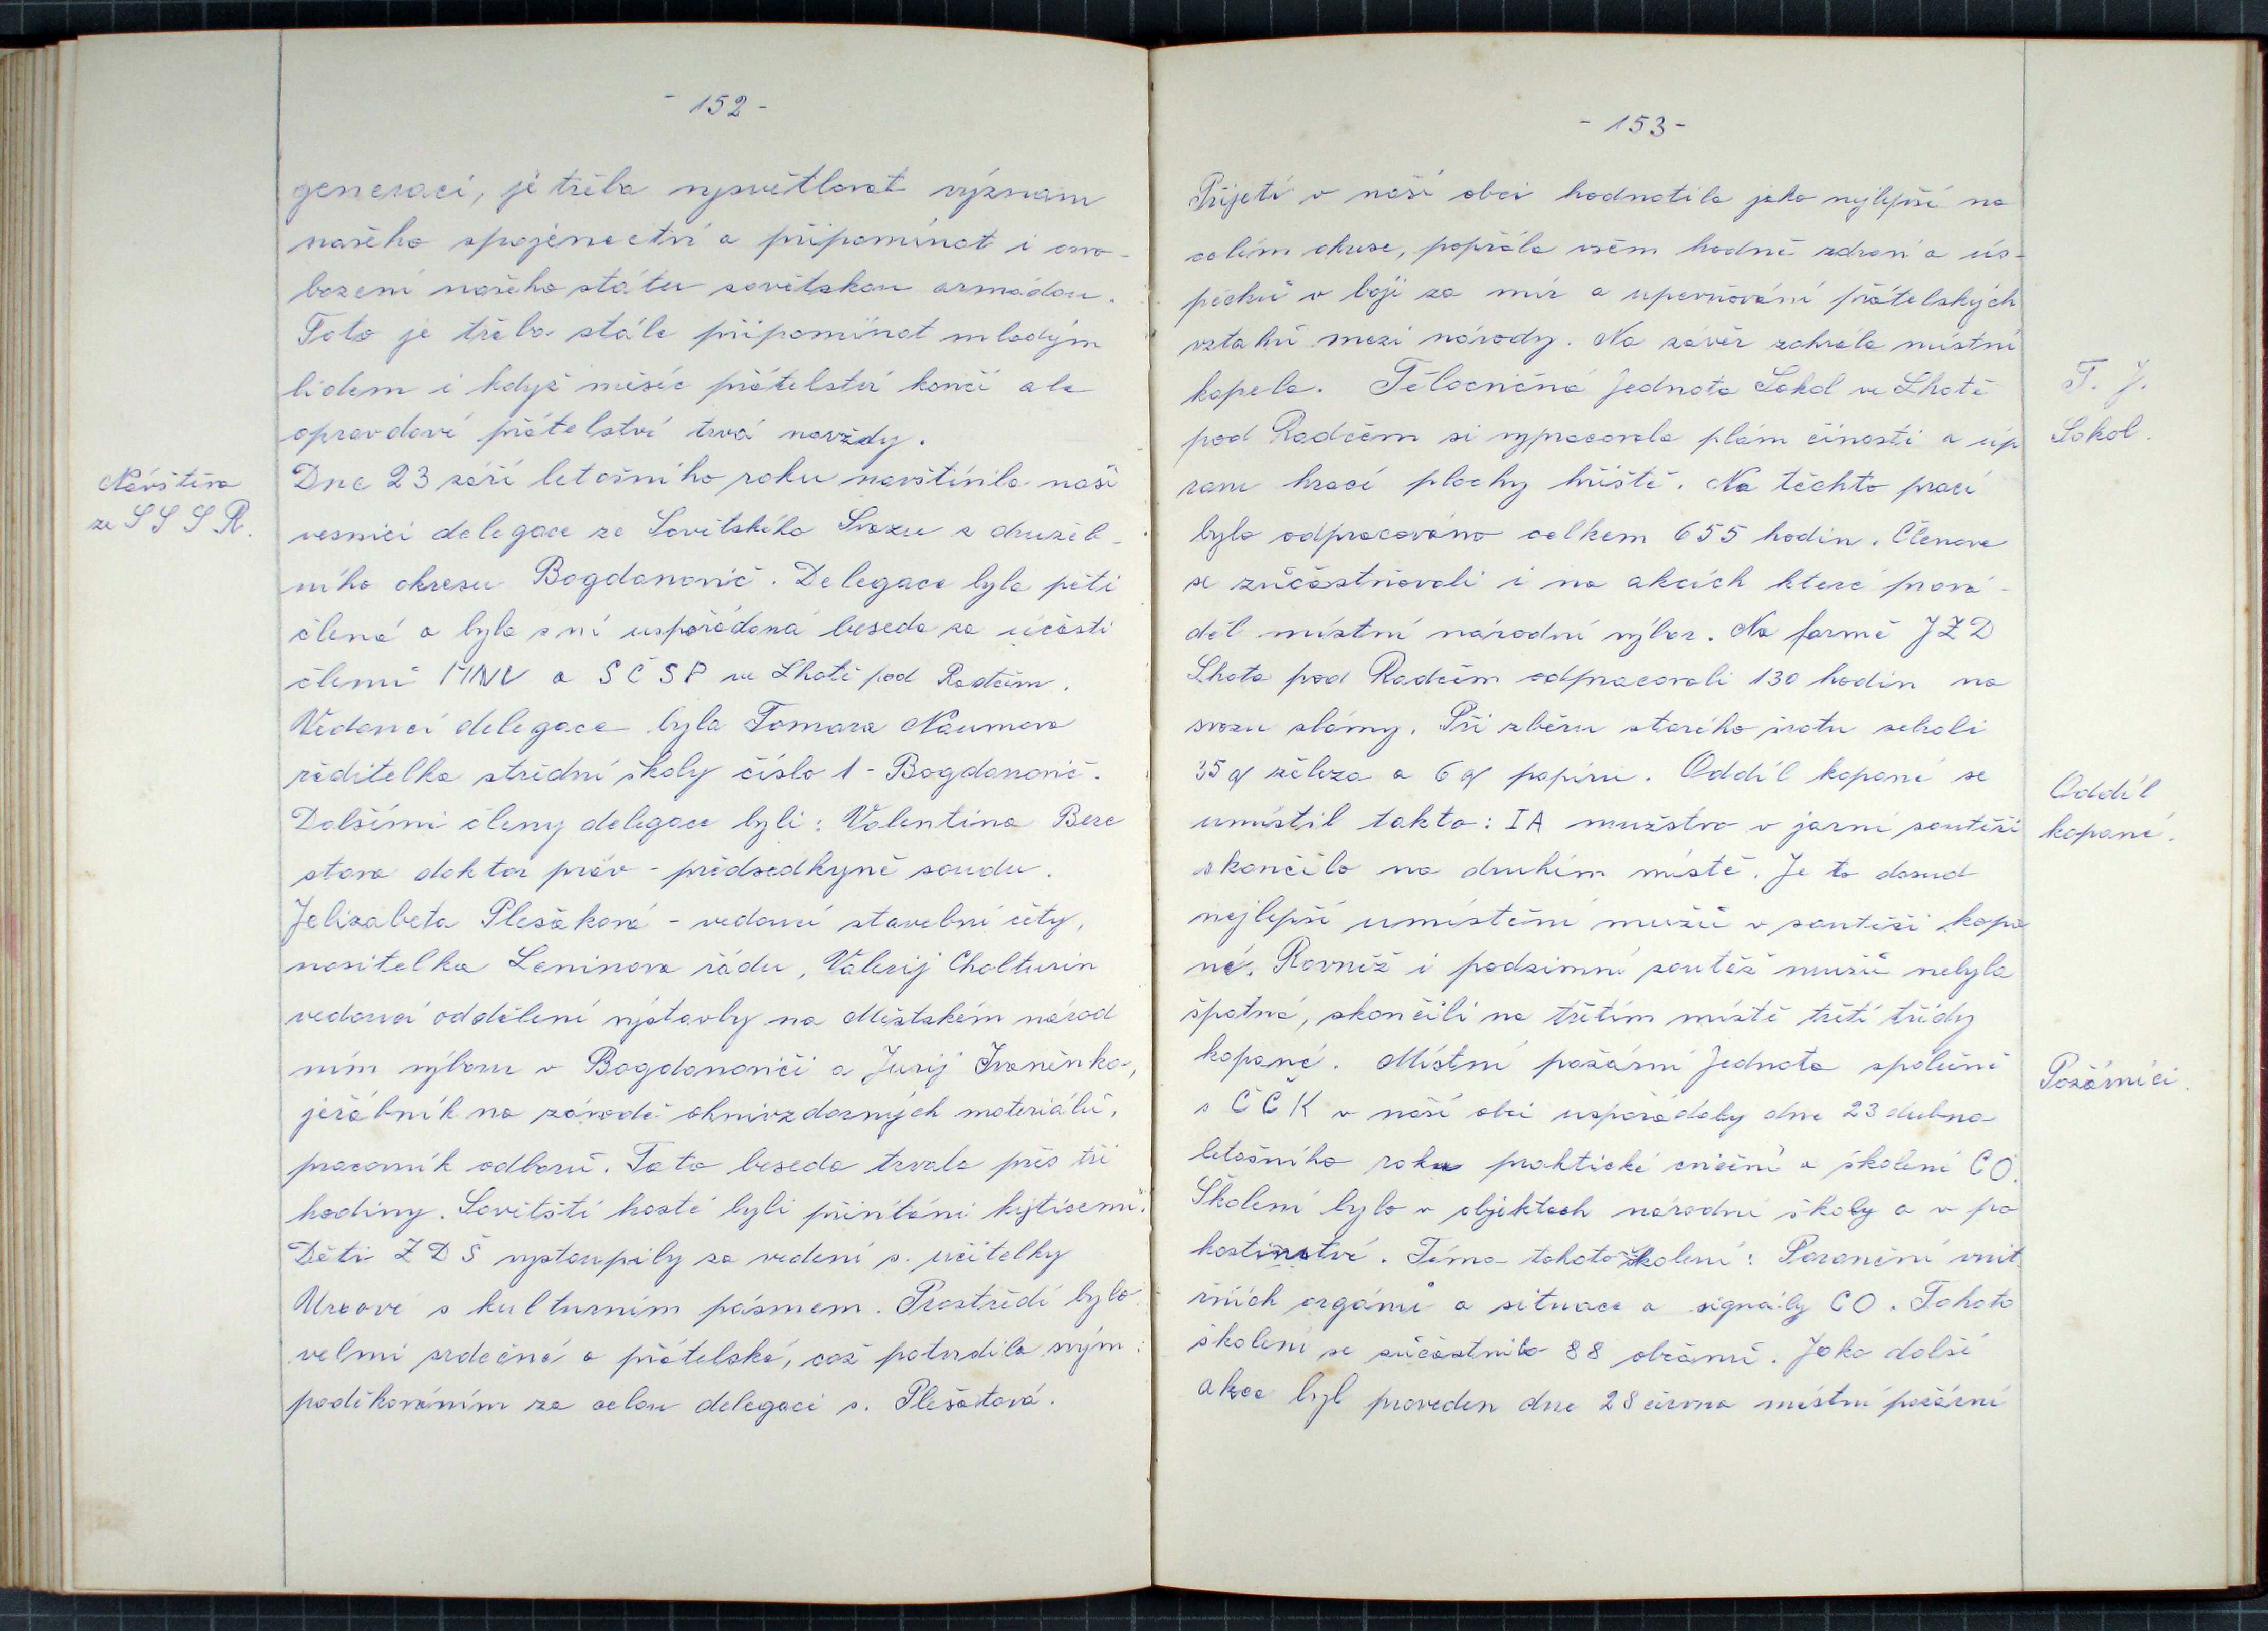 - 152 -
generaci, je třeba vysvětlovat význam
našeho spojenectví a připomínat i osvo-
bození našeho státu sovětskou armádou.
Toto je třeba stále připomínat mladým
lidem i když měsíc přátelství končí ale
opravdové přátelství trvá navždy.
Návštěva
ze S S S R.
Dne 23 září letošního roku navštívila naši
vesnici delegace ze Sovětského Svazu z družeb-
ního okresu Bogdanovič. Delegace byla pěti
člená a byla s ní uspořádaná beseda za účasti
členů MNV a SČSP ve Lhotě pod Radčem.
Vedoucí delegace byla Tamara Naumova
ředitelka střední školy číslo 1 - Bogdanovič.
Dalšími členy delegace byli: Valentina Bere
stova doktor práv - předsedkyně soudu.
Jelizabeta Plešáková - vedoucí stavební čety,
nositelka Leninova řádu, Valerij Cholturin
vedoucí oddělení výstavby na Městském národ
ním výboru v Bogdanoviči a Jurij Ivaněnko,
jeřábník na závodě ohnivzdorných materiálů,
pracovník odborů. Tato beseda trvala přes tři
hodiny. Sovětští hosté byli přivítáni kyticemi.
Děti Z D Š vystoupily za vedení s. učitelky
Urcové s kulturním pásmem. Prostředí bylo
velmi srdečné a přátelské, což potvrdila svým
poděkováním za celou delegaci s. Plešatová.
- 153 -
Přijetí v naší obci hodnotila jako nejlepší na
celém okrese, popřála všem hodně zdraví a ús-
pěchů v boji za mír a upevňování přátelských
vztahů mezi národy. Na závěr zahrála místní
kapela. Tělocvičná Jednota Sokol ve Lhotě
T. J.
Sokol.
pod Radčem si vypracovala plám činosti a úp
ravu hrací plochy hřiště. Na těchto prací
bylo odpracováno celkem 655 hodin. Členove
se zůčastňovali i na akcích které prová-
děl místní národní výbor. Na farmě JZD
Lhota pod Radčem odpracovali 130 hodin na
svozu slámy. Při zběru starého šrotu sebrali
35 q železa a 6 q papíru. Oddíl kopané se
Oddíl
kopané.
umístil takto: IA mužstvo v jarní soutěži
skončilo na druhém místě. Je to dosud
nejlepší umístění mužů v soutěži kopa
né. Rovněž i podzimní soutěž mužů nebyla
špatná, skončili na třetím místě třetí třídy
kopané. Místní požární Jednota společně
Požárníci.
s ČČK v naší obci uspořádaly dne 23 dubna
letošního roku praktické cvičení a školení CO.
Školení bylo v objektech národní školy a v po
hostinství. Téma tohoto školení: Poranění vnit
řních orgánů a situace a signály CO. Tohoto
školení se zúčastnilo 88 občanů. Jako další
akce byl proveden dne 28 června místní požární